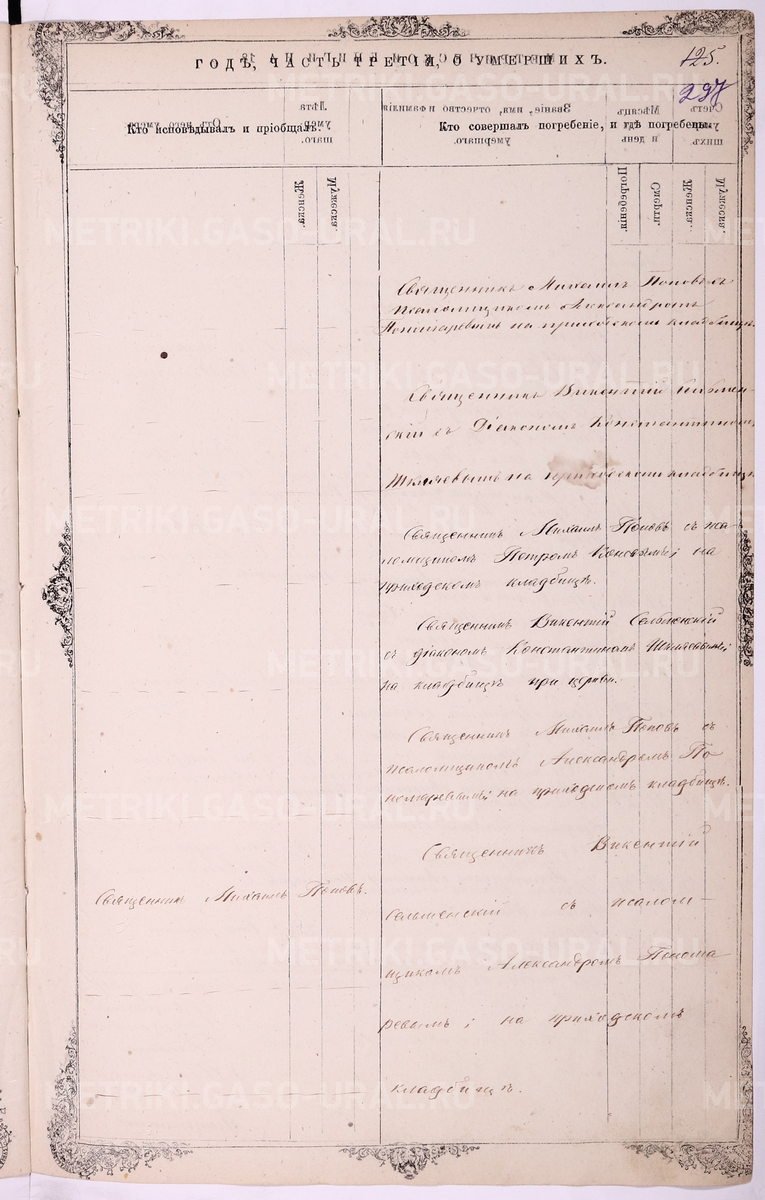 125.
237
ГОДЪ, ЧАСТЬ ТРЕТІЯ, О УМЕРШИХЪ.
Кто исповѣдывалъ и пріобщалъ.
Кто совершалъ погребеніе, и гдѣ погребены.
Священникъ Михаилъ Поповъ съ
псаломщикомъ Александромъ
Пономаревымъ на приходскомъ кладбищѣ.
Священникъ Викентій
скій съ Діакономъ Константиномъ
на приходскомъ кладбищѣ
Священникъ Михаилъ Поповъ съ пса-
ломщикомъ Петромъ на
приходскомъ кладбищѣ.
Священникъ Викентій Сельменскій
съ діакономъ Константиномъ
на кладбищѣ при церкви.
Священникъ Михаилъ Поповъ съ
псаломщикомъ Александромъ По
номаревымъ; на приходскомъ кладбищѣ.
Священникъ Викентій
Сельменскій съ псалом-
щикомъ Александромъ Понома
ревымъ; на приходскомъ
кладбищѣ.
Священникъ Михаилъ Поповъ.
METRIKI.GASO-URAL.RU